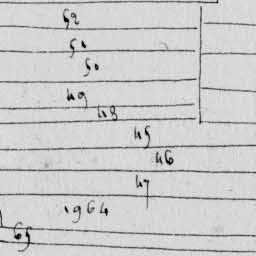 52
50
50
49
48
45
46
47
1964
65